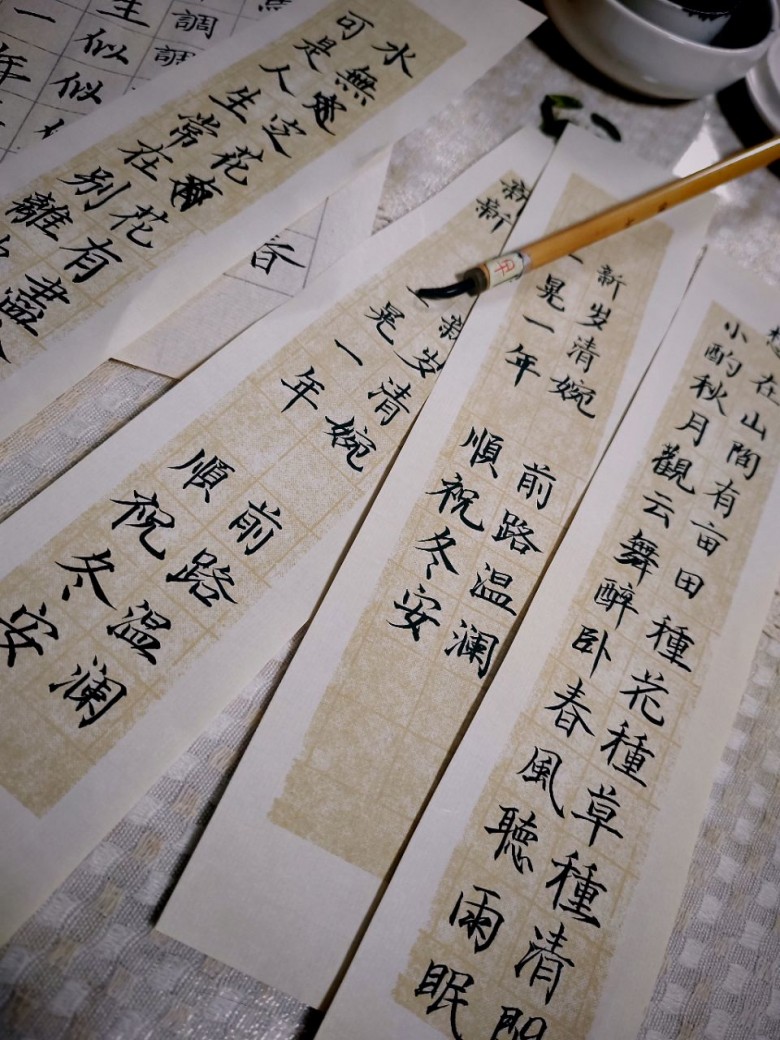 在山間有亩田種花種草種清
小酌秋月觀云舞醉卧春風聽雨眠
新岁清婉
前路温澜
一晃一年
順祝冬安
新新
新岁清婉
前路温澜
一晃一年
順祝冬安
水無定花花有盡
可是人生常在别離
調調
生似似
一年